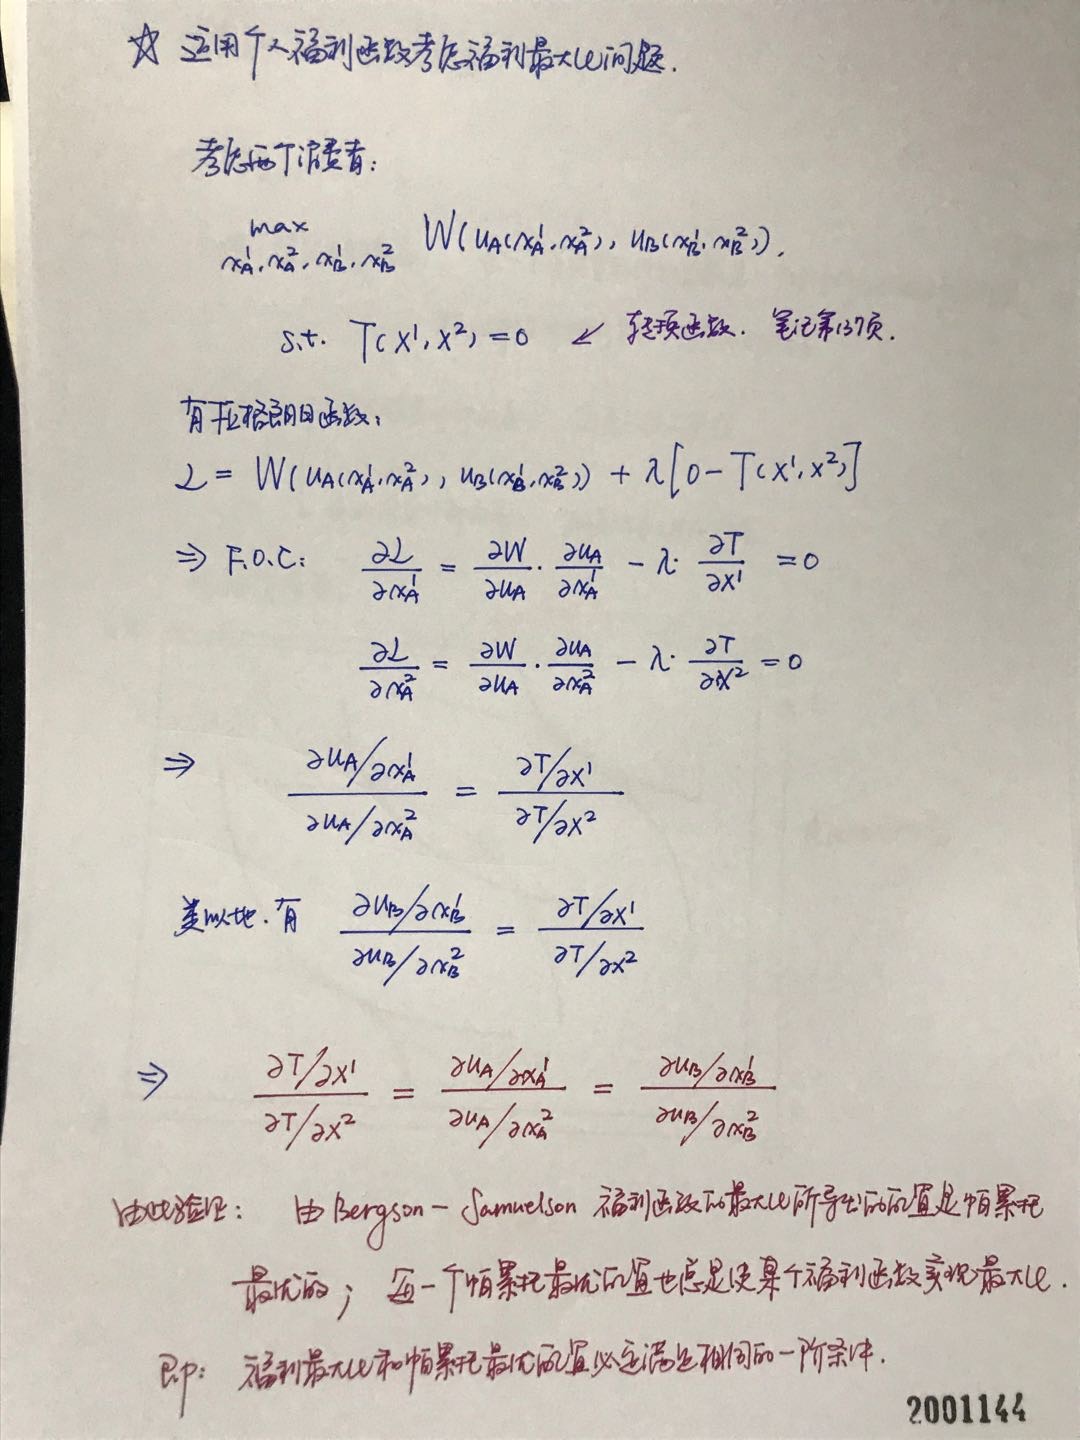 ☆ 运用个人福利函数考虑福利最大化问题.
考虑两个消费者:
max W(u_A(x_A^1, x_A^2), u_B(x_B^1, x_B^2)).
x_A^1, x_A^2, x_B^1, x_B^2
s.t. T(X^1, X^2) = 0 ↙ 转换函数. 笔记第137页.
有拉格朗日函数:
L = W(u_A(x_A^1, x_A^2), u_B(x_B^1, x_B^2)) + λ[0 - T(X^1, X^2)]
⇒ F.O.C: ∂L/∂x_A^1 = ∂W/∂u_A · ∂u_A/∂x_A^1 - λ · ∂T/∂X^1 = 0
∂L/∂x_A^2 = ∂W/∂u_A · ∂u_A/∂x_A^2 - λ · ∂T/∂X^2 = 0
⇒ (∂u_A/∂x_A^1)/(∂u_A/∂x_A^2) = (∂T/∂X^1)/(∂T/∂X^2)
类似地. 有 (∂u_B/∂x_B^1)/(∂u_B/∂x_B^2) = (∂T/∂X^1)/(∂T/∂X^2)
⇒ (∂T/∂X^1)/(∂T/∂X^2) = (∂u_A/∂x_A^1)/(∂u_A/∂x_A^2) = (∂u_B/∂x_B^1)/(∂u_B/∂x_B^2)
由此验证: 由Bergson-Samuelson 福利函数的最大化所导出的配置是帕累托
最优的; 每一个帕累托最优配置也总是使某个福利函数实现最大化.
即: 福利最大化和帕累托最优配置必定满足相同的一阶条件.
2001144